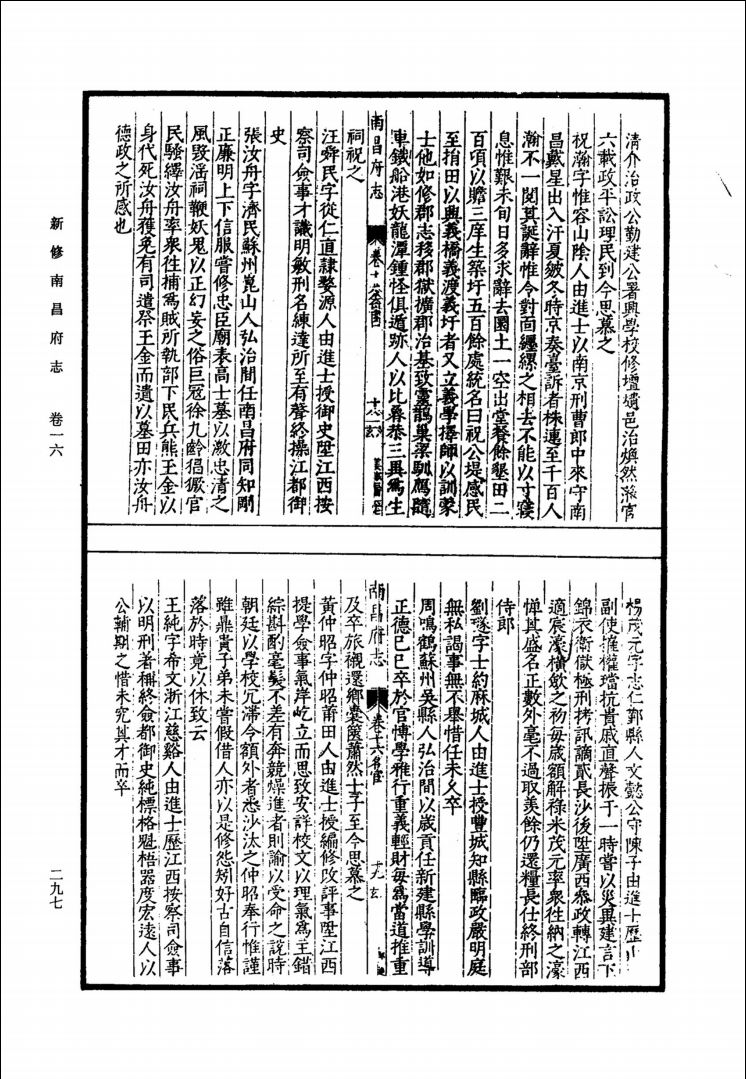 清介治政公勤建公署興學校修壇墠邑治煥然滌官
六載政平訟理民到今思慕之
祝瀚字惟容山陰人由進士以南京刑曹郎中來守南
昌戴星出入汗夏皴冬時京奏臺訴者株連至千百人
瀚不一閱其誕辭惟令對面纒縲之相去不能以寸寢
息惟艱未旬日多求辭去圜土一空出堂餐餘墾田二
百項以贍三庠生築圩五百餘處統名曰祝公堤感民
至捐田以興義橋義渡義圩者又立義學擇師以訓蒙
士他如修郡志移郡獄擴郡治基致靈鵲巢梁馴鴈隨
車鐵船港妖龍潭鍾怪俱遁跡人以比魯恭三異為生
南昌府志
卷十六
祠祝之
汪舜民字從仁直隷婺源人由進士授御史陞江西按
察司僉事才識明敏刑名練達所至有聲終操江都御
史
張汝舟字濟民蘇州崑山人弘治間任南昌府同知剛
正廉明上下信服嘗修忠臣廟表高士墓以激忠清之
風毀滛祠鞭妖鬼以正幻妄之俗巨冦徐九齡猖獗官
民騷繹汝舟率衆徃捕為賊所執部下民兵熊王金以
身代死汝舟獲免有司遣祭王金而遺以墓田亦汝舟
德政之所感也
楊茂元字志仁鄞縣人文懿公守陳子由進士歷
副使摧權璫抗貴戚直聲振于一時嘗以災異建言下
錦衣衛獄極刑拷訊謫貳長沙後陞廣西叅政轉江西
適宸濠橫斂之初每歲額解祿米茂元率衆徃納之濠
憚其盛名正數外毫不過取羡餘仍還糧長仕終刑部
侍郎
劉𤩽字士約麻城人由進士授豐城知縣臨政嚴明庭
無私謁事無不舉惜任未久卒
周鳴鶴蘇州吳縣人弘治間以歲貢任新建縣學訓導
正德己巳卒於官博學雅行重義輕財每為當道推重
南昌府志
卷十六名宦
十九
及卒旅櫬還鄉囊篋蕭然士子至今思慕之
黃仲昭字仲昭莆田人由進士授編修改評事陞江西
提學僉事氣岸屹立而思致安詳校文以理氣為主錯
綜斟酌毫髮不差有奔競燥進者則諭以受命之說時
朝廷以學校冗滯令額外者悉沙汰之仲昭奉行惟謹
雖鼎貴子弟未嘗假借人亦以是修怨矧好古自信落
落於時竟以休致云
王純字希文浙江慈谿人由進士歷江西按察司僉事
以明刑著稱終僉都御史純標格魁梧器度宏遠人以
公輔期之惜未究其才而卒
新修南昌府志 卷一六
二九七